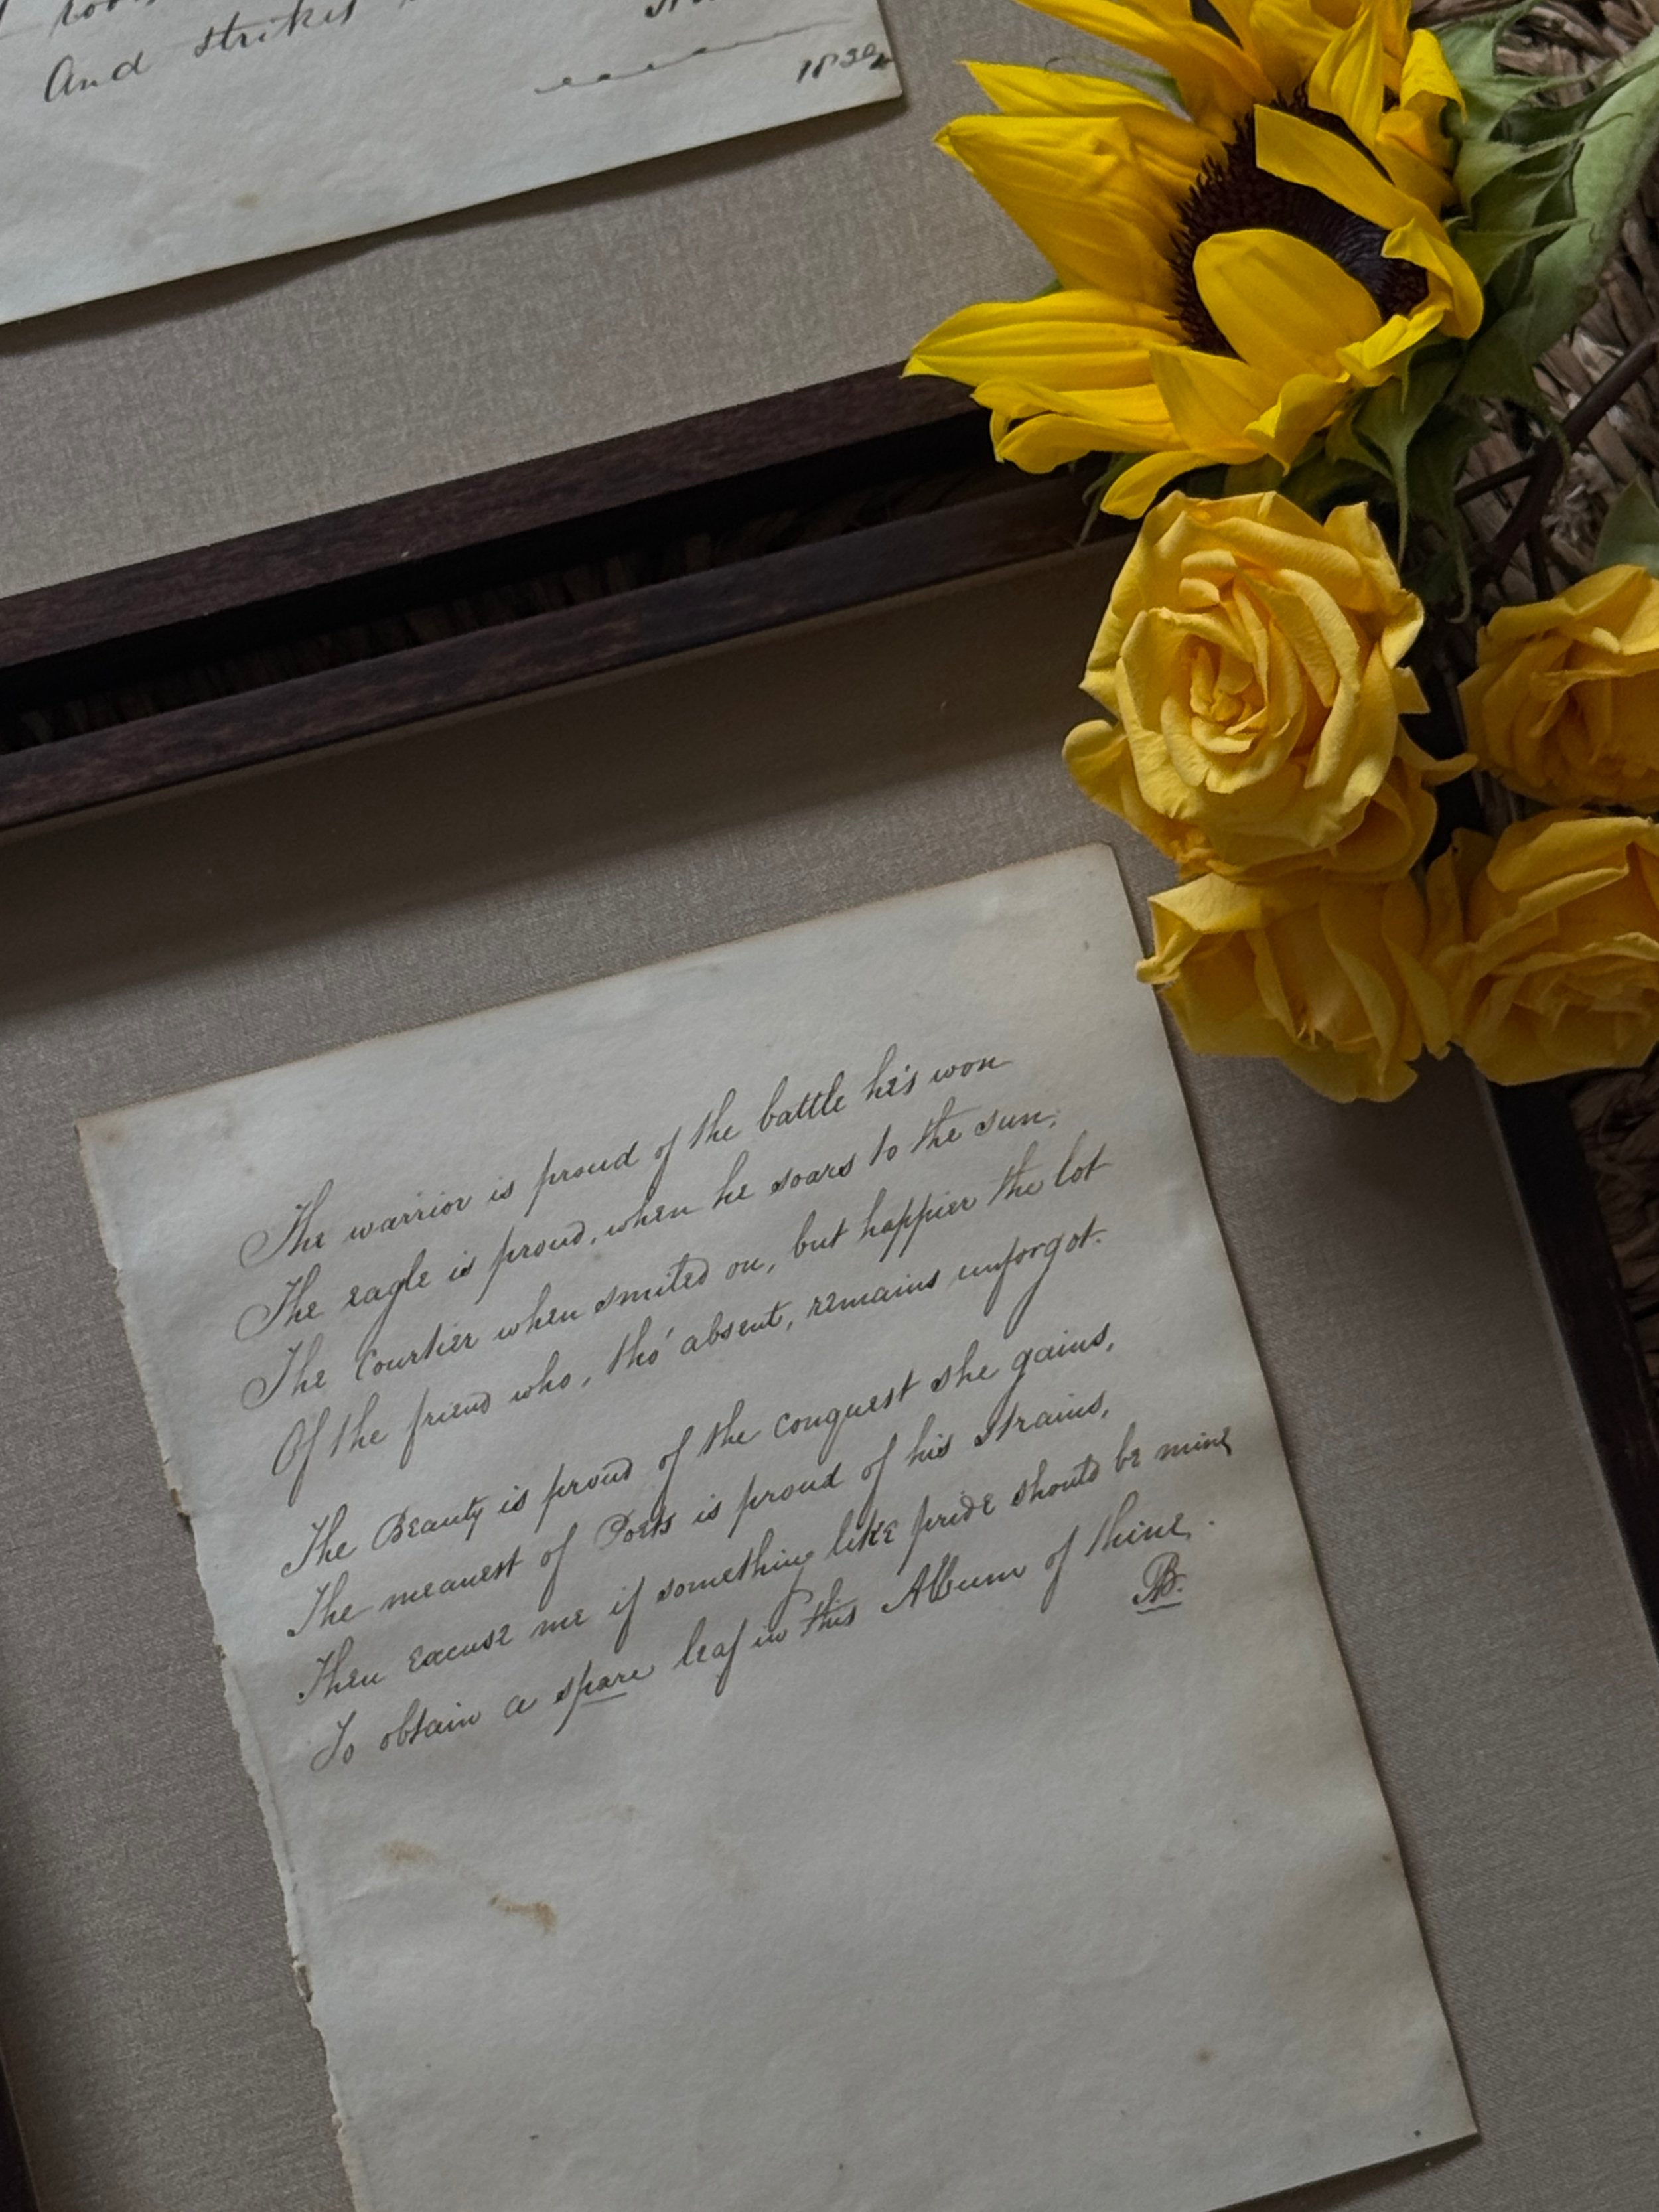 And strikes
The warrior is proud of the battle he's won
The eagle is proud, when he soars to the sun,
The Courtier when smiled on, but happier the lot
Of the friend who, tho' absent, remains unforgot.
The Beauty is proud of the conquest she gains,
The meanest of Poets is proud of his strains,
Then excuse me if something like pride should be mine
To obtain a spare leaf in this Album of thine.